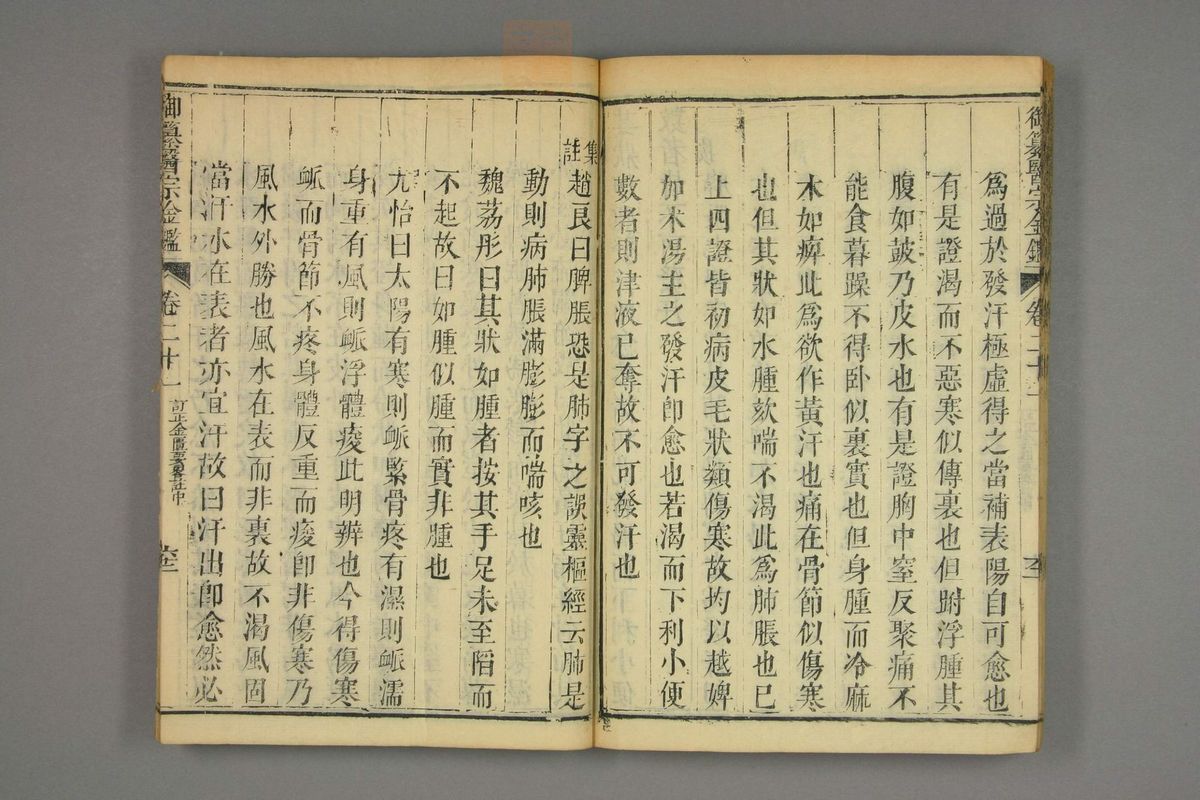 御纂醫宗金鑑
卷二十一
為過於發汗極虛得之當補表陽自可愈也
有是證渴而不惡寒似傳裏也但跗浮腫其
腹如皷乃皮水也有是證胸中窒反聚痛不
能食暮躁不得卧似裏實也但身腫而冷痲
木如痺此為欲作黃汗也痛在骨節似傷寒
也但其狀如水腫欬喘不渴此為肺脹也已
上四證皆初病皮毛狀類傷寒故均以越婢
加术湯主之發汗卽愈也若渴而下利小便
數者則津液已奪故不可發汗也
集註
趙良曰脾脹恐是肺字之誤靈樞經云肺是
動則病肺脹滿膨膨而喘咳也
魏荔彤曰其狀如腫者按其手足未至陷而
不起故曰如腫似腫而實非腫也
尤怡曰太陽有寒則衇緊骨疼有濕則衇濡
身重有風則衇浮體痠此明辨也今得傷寒
衇而骨節不疼身體反重而痠卽非傷寒乃
風水外勝也風水在表而非裏故不渴風固
當汗水在表者亦宜汗故曰汗出卽愈然必
御纂醫宗金鑑
卷二十一
訂正金匱要畧註中